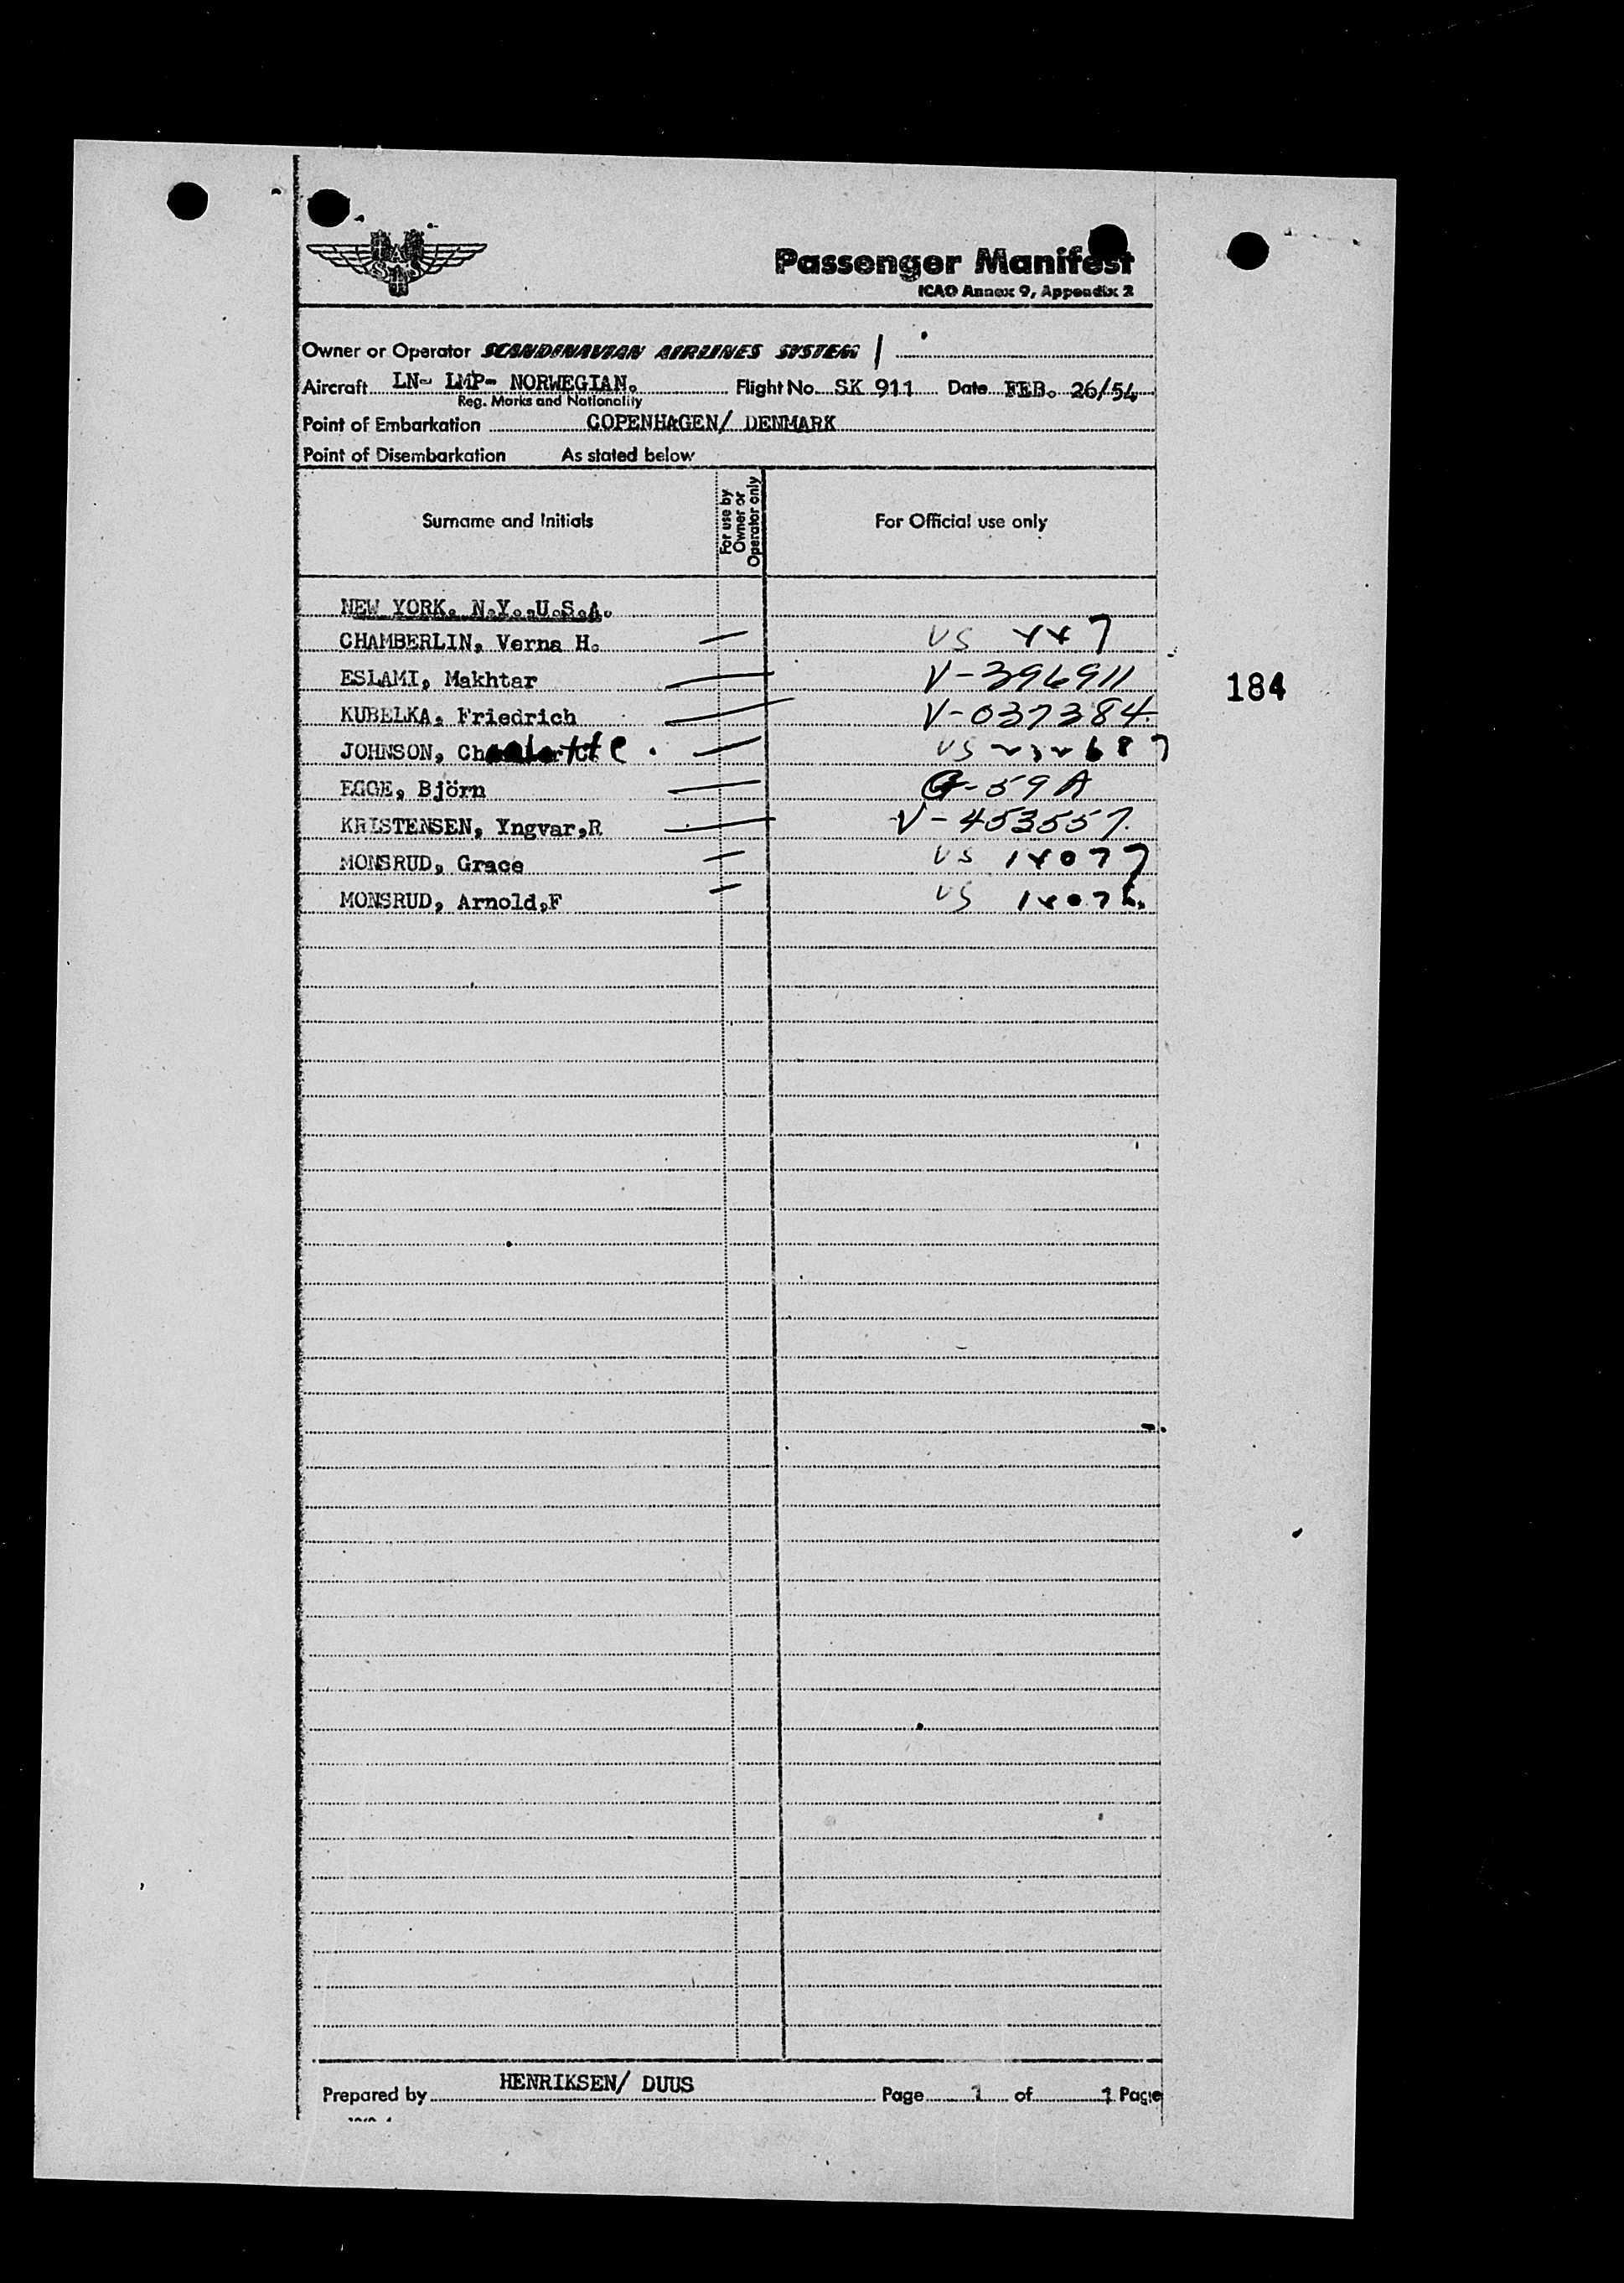 Passenger Manifest
ICAO Annex 9, Appendix 2
Owner or Operator SCANDINAVIAN AIRLINES SYSTEM
Aircraft LN- LMP- NORWEGIAN. Flight No. SK 911 Date FEB. 26/54
Reg. Marks and Nationality
Point of Embarkation COPENHAGEN/ DENMARK
Point of Disembarkation As stated below
Surname and Initials For use by Owner or Operator only For Official use only
NEW YORK. N.Y.,U.S.A.
CHAMBERLIN, Verna H. US
ESLAMI, Makhtar V-396911
184
KUBELKA, Friedrich V-037384.
JOHNSON, US
EGGE, Björn G-59A
KRISTENSEN, Yngvar,R V-453557.
MONSRUD, Grace US
MONSRUD, Arnold,F US
Prepared by HENRIKSEN/ DUUS Page 1 of 1 Page